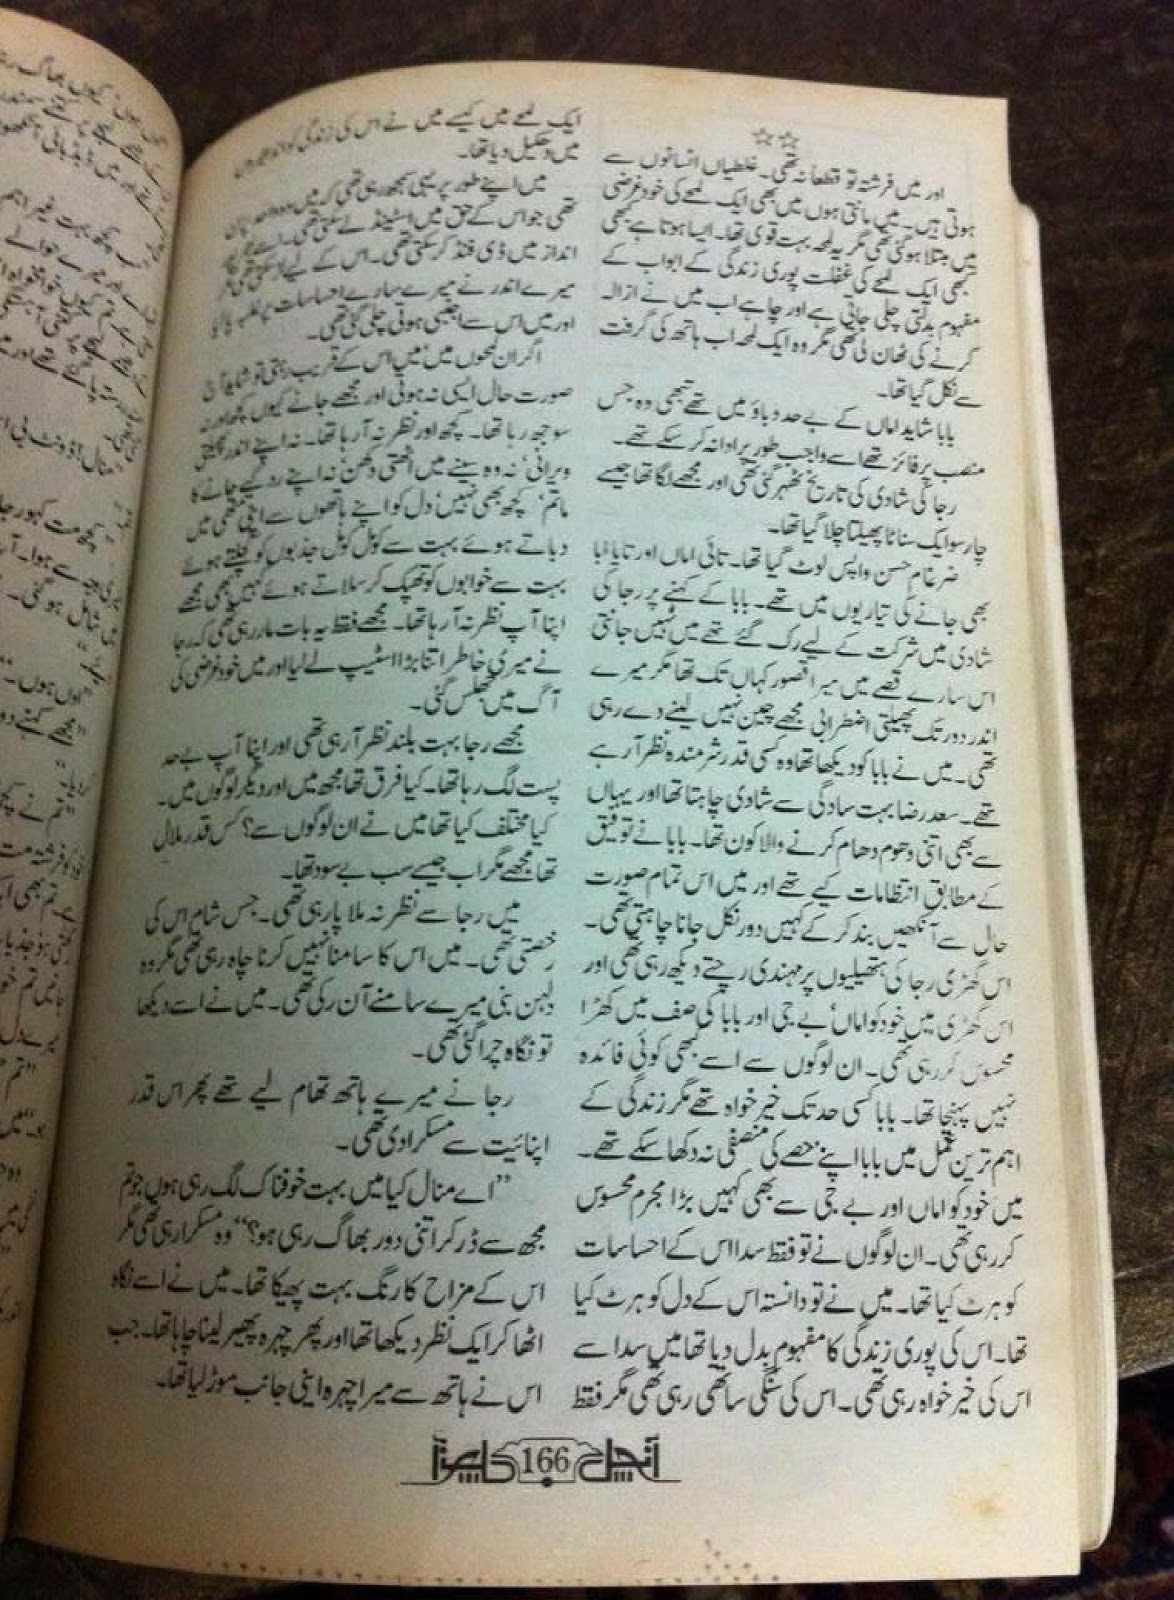 ☆☆
اور میں فرشتہ تو قطعاً نہ تھی۔ غلطیاں انسانوں سے
ہوتی ہیں۔ میں مانتی ہوں میں بھی ایک لمحے کی خودغرضی
میں مبتلا ہوگئی تھی مگر یہ لمحہ بہت قوی تھا۔ ایسا ہوتا ہے کبھی
کبھی ایک لمحے کی غفلت پوری زندگی کے ابواب کے
مفہوم بدلتی چلی جاتی ہے اور چاہے اب میں نے ازالہ
کرنے کی ٹھان لی تھی مگر وہ ایک لمحہ اب ہاتھ کی گرفت
سے نکل گیا تھا۔
بابا شاید اماں کے بے حد دباؤ میں تھے تبھی وہ جس
منصب پر فائز تھے اسے واجب طور پر ادا نہ کرسکے تھے۔
رجا کی شادی کی تاریخ ٹھہر گئی تھی اور مجھے لگا تھا جیسے
چار سو ایک سناٹا پھیلتا چلا گیا تھا۔
ضرغام حسن واپس لوٹ گیا تھا۔ تائی اماں اور تایا ابا
بھی جانے کی تیاریوں میں تھے۔ بابا کے کہنے پر رجا کی
شادی میں شرکت کے لیے رک گئے تھے میں نہیں جانتی
اس سارے قصے میں میرا قصور کہاں تک تھا مگر میرے
اندر دور تک پھیلتی اضطرابی مجھے چین نہیں لینے دے رہی
تھی۔ میں نے بابا کو دیکھا تھا وہ کسی قدر شرمندہ نظر آرہے
تھے۔ سعد رضا بہت سادگی سے شادی چاہتا تھا اور یہاں
سے بھی اتنی دھوم دھام کرنے والا کون تھا۔ بابا نے توفیق
کے مطابق انتظامات کیے تھے اور میں اس تمام صورت
حال سے آنکھیں بند کرکے کہیں دور نکل جانا چاہتی تھی۔
اس گھڑی رجا کی ہتھیلیوں پر مہندی رچتے دیکھ رہی تھی اور
اس گھڑی میں خود کو اماں، بے جی اور بابا کی صف میں کھڑا
محسوس کررہی تھی۔ ان لوگوں سے اسے کبھی کوئی فائدہ
نہیں پہنچا تھا۔ بابا کسی حد تک خیر خواہ تھے مگر زندگی کے
اہم ترین عمل میں بابا اپنے حصے کی منصفی نہ دکھا سکے تھے۔
میں خود کو اماں اور بے جی سے بھی کہیں بڑا مجرم محسوس
کررہی تھی۔ ان لوگوں نے تو فقط سدا اس کے احساسات
کو ہرٹ کیا تھا۔ میں نے تو دانستہ اس کے دل کو ہرٹ کیا
تھا۔ اس کی پوری زندگی کا مفہوم بدل دیا تھا میں سدا سے
اس کی خیر خواہ رہی تھی۔ اس کی سنگی ساتھی رہی تھی مگر فقط
ایک لمحے میں کیسے میں نے اس کی زندگی کو
میں دھکیل دیا تھا۔
میں اپنے طور پر یہی سمجھ رہی تھی کہ میں
تھی جو اس کے حق میں اسٹینڈ لے سکتی تھی۔ اسے
انداز میں ڈی فنڈ کرسکتی تھی۔ اس کے لیے
میرے اندر نے میرے سارے احساسات پر
اور میں اس سے اجنبی ہوتی چلی گئی تھی۔
اگر ان لمحوں میں، میں اس کے قریب رہتی تو شاید
صورت حال ایسی نہ ہوتی اور مجھے جانے کیوں کچھ اور نہ
سوجھ رہا تھا۔ کچھ اور نظر نہ آرہا تھا۔ نہ اپنے اندر
ویرانی، نہ وہ سینے میں اٹھتی دکھن نہ اپنے رد کیے جانے کا
ماتم، کچھ بھی نہیں، دل کو اپنے ہاتھوں سے اپنی مٹھی میں
دباتے ہوئے بہت سے کومل کومل جذبوں کو کچلتے ہوئے
بہت سے خوابوں کو تھپک کر سلاتے ہوئے کہیں بھی مجھے
اپنا آپ نظر نہ آرہا تھا۔ مجھے فقط یہ بات مار رہی تھی کہ رجا
نے میری خاطر اتنا بڑا اسٹیپ لے لیا اور میں خودغرضی کی
آگ میں جھلس گئی۔
مجھے رجا بہت بلند نظر آرہی تھی اور اپنا آپ بے حد
پست لگ رہا تھا۔ کیا فرق تھا مجھ میں اور دیگر لوگوں میں۔
کیا مختلف کیا تھا میں نے ان لوگوں سے؟ کس قدر ملال
تھا مجھے مگر اب جیسے سب بے سود تھا۔
میں رجا سے نظر نہ ملا پارہی تھی۔ جس شام اس کی
رخصتی تھی۔ میں اس کا سامنا نہیں کرنا چاہ رہی تھی مگر وہ
دلہن بنی میرے سامنے آن رکی تھی۔ میں نے اسے دیکھا
تو نگاہ چرا گئی تھی۔
رجا نے میرے ہاتھ تھام لیے تھے پھر اس قدر
اپنائیت سے مسکرادی تھی۔
”اے منال کیا میں بہت خوفناک لگ رہی ہوں جو تم
مجھ سے ڈر کر اتنی دور بھاگ رہی ہو؟“ وہ مسکرا رہی تھی مگر
اس کے مزاح کا رنگ بہت پھیکا تھا۔ میں نے اسے نگاہ
اٹھا کر ایک نظر دیکھا تھا اور پھر چہرہ پھیر لینا چاہا تھا۔ جب
اس نے ہاتھ سے میرا چہرہ اپنی جانب موڑ لیا تھا۔
آنچل 166